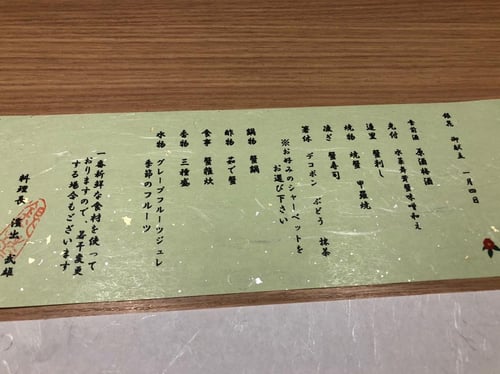 御献立 一月四日
食前酒 原酒梅酒
先付 水菜舞茸蟹味噌和え
造里 蟹刺し
焼物 焼蟹 甲羅焼
凌ぎ 蟹寿司
箸休 デコポン ぶどう 抹茶
※お好みのシャーベットを
お選び下さい
鍋物 蟹鍋
酢物 茹で蟹
食事 蟹雑炊
香物 三種盛
水物 グレープフルーツジュレ
季節のフルーツ
一番新鮮な食材を使って
おりますので、若干変更
する場合もございます
料理長 濱出 武雄